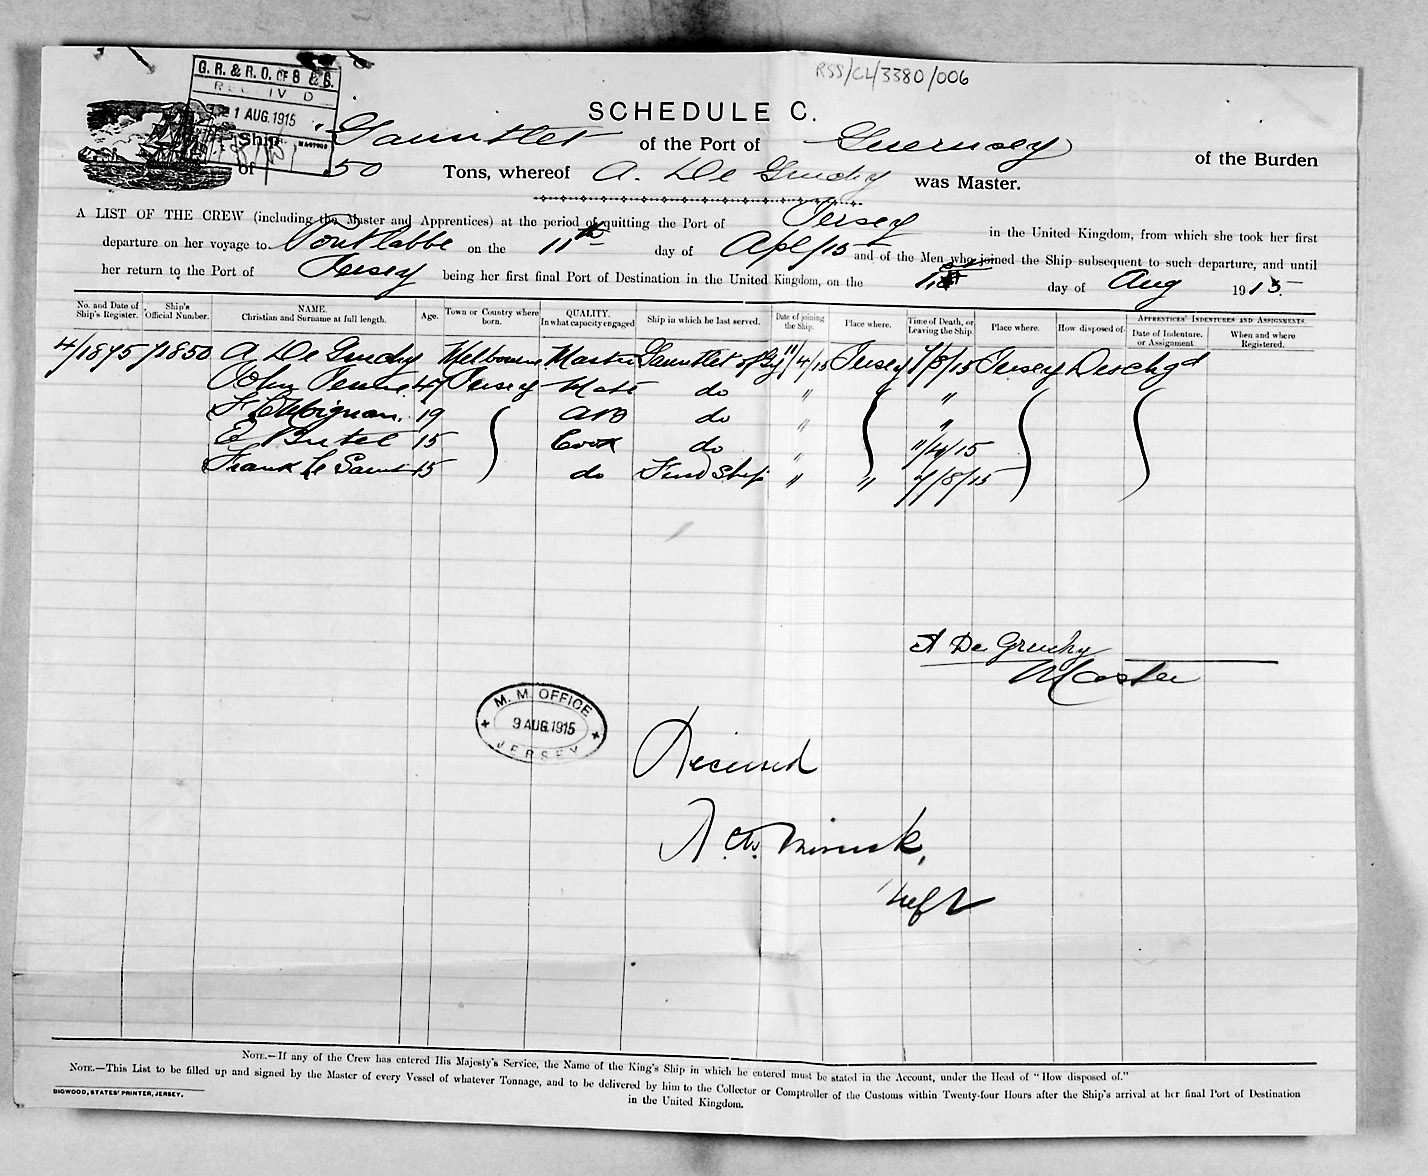 RSS/CL/3380/006
G. R. & R. O. OF S & S.
21 AUG. 1915
SCHEDULE C.
Ship "Gauntlet of the Port of Guernsey of the Burden
of 50 Tons, whereof A. De Gruchy was Master.
A LIST OF THE CREW (including the Master and Apprentices) at the period of quitting the Port of Jersey in the United Kingdom, from which she took her first
departure on her voyage to Pont l'abbe on the 11th day of Apl/15 and of the Men who joined the Ship subsequent to such departure, and until
her return to the Port of Jersey being her first final Port of Destination in the United Kingdom, on the day of Aug 1915.
No. and Date of Ship's Register. Ship's Official Number. NAME. Christian and Surname at full length. Age. Town or Country where born. QUALITY. In what capacity engaged Ship in which he last served. Date of joining the Ship. Place where. Time of Death, or Leaving the Ship. Place where. How disposed of. APPRENTICES' INDENTURES AND ASSIGNMENTS. Date of Indenture. or Assignment When and where Registered.
4/1875 71850 A De Gruchy Melbourne Master Gauntlet of Gy 11/4/15 Jersey 7/8/15 Jersey Dischgd
John 47 Jersey Mate do " "
19 AB do " "
E Butel 15 Cook do " 11/4/15
Frank Le 15 do First Ship " " 7/8/15
A De Gruchy
Master
M. M. OFFICE
9 AUG. 1915
JERSEY
Received
NOTE.—If any of the Crew has entered His Majesty's Service, the Name of the King's Ship in which he entered must be stated in the Account, under the Head of "How disposed of."
NOTE.—This List to be filled up and signed by the Master of every Vessel of whatever Tonnage, and to be delivered by him to the Collector or Comptroller of the Customs within Twenty-four Hours after the Ship's arrival at her final Port of Destination
in the United Kingdom.
BIGWOOD, STATES' PRINTER, JERSEY.